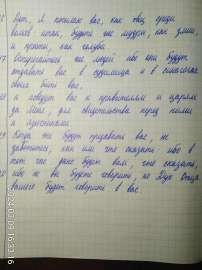 16 Вот, Я посылаю вас, как овец среди
волков: итак, будьте же мудры, как змии,
и просты, как голуби.
17 Остерегайтесь же людей: ибо они будут
отдавать вас в судилища и в синагогах
своих бить вас,
18 и поведут вас к правителям и царям
за Меня, для свидетельства перед ними
и язычниками.
19 Когда же будут предавать вас, не
заботьтесь, как или что сказать; ибо в
тот час дано будет вам, что сказать,
20 ибо не вы будете говорить, но Дух Отца
вашего будет говорить в вас.